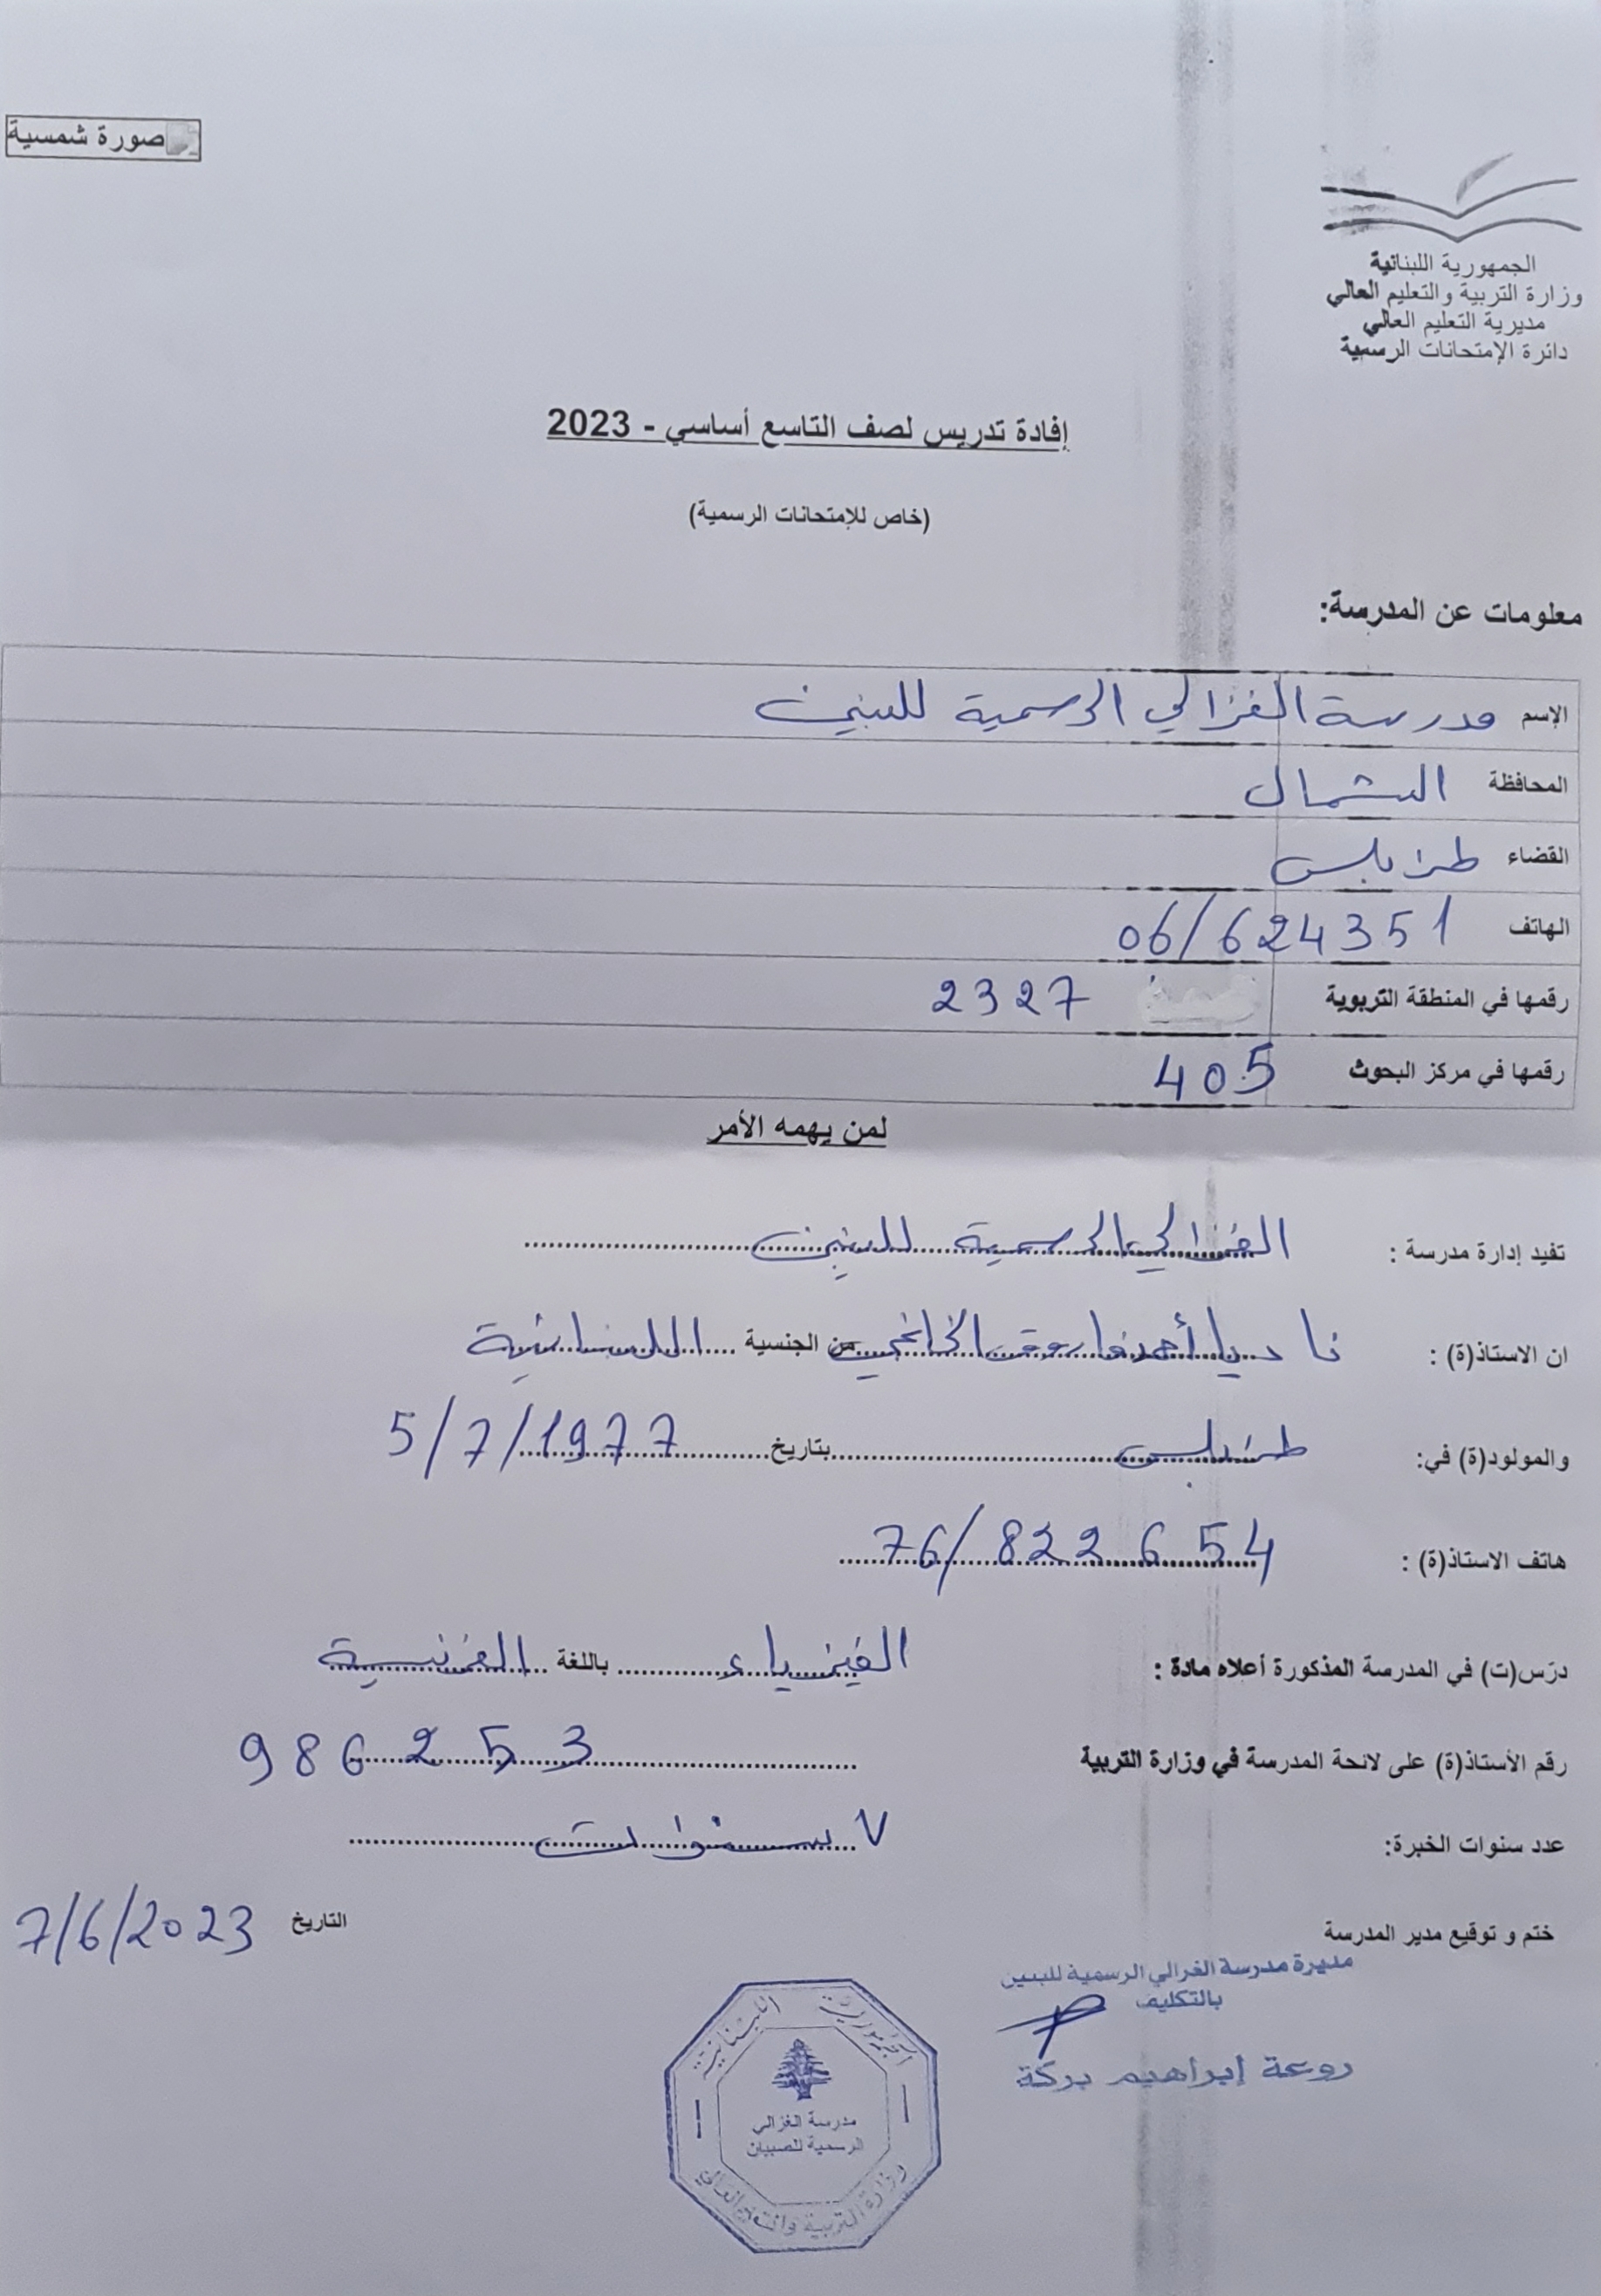 صورة شمسية
الجمهورية اللبنانية
وزارة التربية والتعليم العالي
مديرية التعليم العالي
دائرة الإمتحانات الرسمية
إفادة تدريس لصف التاسع أساسي - 2023
(خاص للإمتحانات الرسمية)
معلومات عن المدرسة:
الإسم مدرسة الغزالي الرسمية للبنين
المحافظة الشمال
القضاء طرابلس
الهاتف 06/624351
رقمها في المنطقة التربوية 2327
رقمها في مركز البحوث 405
لمن يهمه الأمر
تفيد إدارة مدرسة : الغزالي الرسمية للبنين
ان الاستاذ(ة) : ناديا أحمد فاروق الخانجي من الجنسية اللبنانية
والمولود(ة) في: طرابلس بتاريخ 5/7/1977
هاتف الاستاذ(ة) : 76/822654
درّس(ت) في المدرسة المذكورة أعلاه مادة : الفيزياء باللغة الفرنسية
رقم الأستاذ(ة) على لائحة المدرسة في وزارة التربية 986253
عدد سنوات الخبرة: ٧ سنوات
ختم و توقيع مدير المدرسة التاريخ 7/6/2023
مديرة مدرسة الغزالي الرسمية للبنين
بالتكليف
روعة إبراهيم بركة
الجمهورية اللبنانية
مدرسة الغزالي
الرسمية للصبيان
وزارة التربية والتعليم العالي